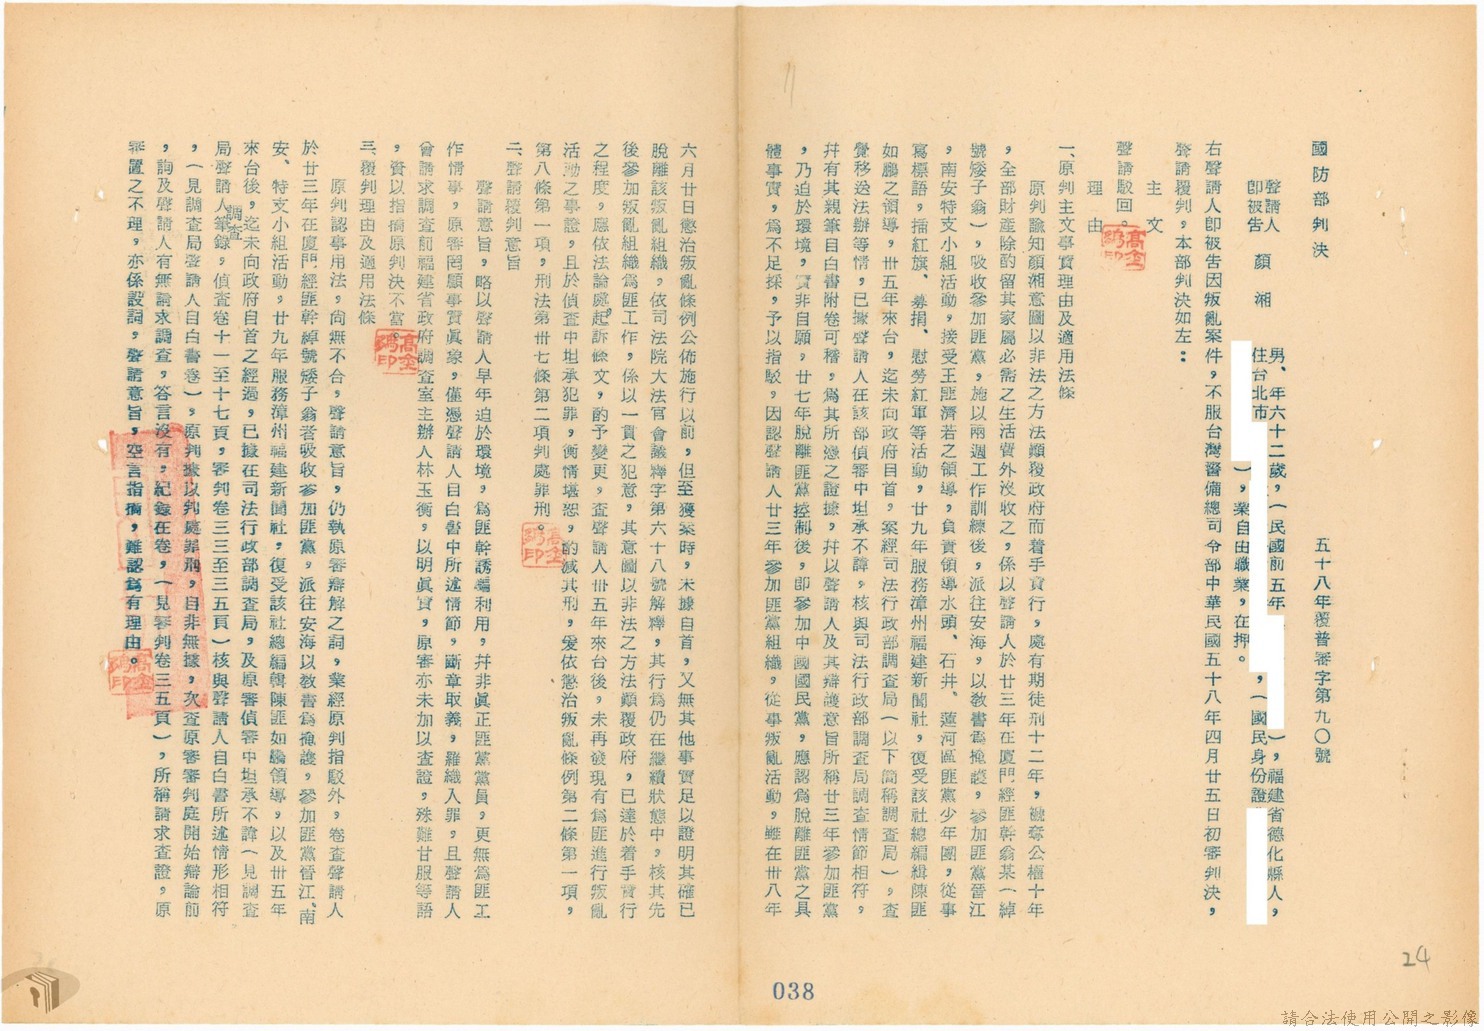 國防部判決
五十八年覆普審字第九〇號
聲請人
即被告　顏　湘
男、年六十二歲，（民國前五年　　），福建省德化縣人，
住台北市　　），業自由職業，在押。　　，（國民身份證
右聲請人即被告因叛亂案件，不服台灣警備總司令部中華民國五十八年四月廿五日初審判決，
聲請覆判，本部判決如左：
主　文
聲請駁回。
理　由
一、原判主文事實理由及適用法條
原判諭知顏湘意圖以非法之方法顛覆政府而着手實行，處有期徒刑十二年，褫奪公權十年
，全部財產除酌留其家屬必需之生活費外沒收之，係以聲請人於廿三年在廈門經匪幹翁某（綽
號矮子翁），吸收參加匪黨，施以兩週工作訓練後，派往安海，以教書為掩護，參加匪黨晉江
，南安特支小組活動，接受王匪濟若之領導，負責領導水頭、石井、蓮河區匪黨少年團，從事
寫標語，插紅旗、募捐、慰勞紅軍等活動，廿九年服務漳州福建新聞社，復受該社總編緝陳匪
如鵬之領導，卅五年來台，迄未向政府自首，案經司法行政部調查局（以下簡稱調查局），查
覺移送法辦等情，已據聲請人在該部偵審中坦承不諱，核與司法行政部調查局調查情節相符，
幷有其親筆自白書附卷可稽，為其所憑之證據，幷以聲請人及其辯護意旨所稱廿三年參加匪黨
，乃迫於環境，實非自願，廿七年脫離匪黨控制後，即參加中國國民黨，應認為脫離匪黨之具
體事實，為不足採，予以指駁，因認聲請人廿三年參加匪黨組織，從事叛亂活動，雖在卅八年
六月廿日懲治叛亂條例公佈施行以前，但至獲案時，未據自首，又無其他事實足以證明其確已
脫離該叛亂組織，依司法院大法官會議釋字第六十八號解釋，其行為仍在繼續狀態中，核其先
後參加叛亂組織為匪工作，係以一貫之犯意，其意圖以非法之方法顛覆政府，已達於着手實行
之程度，應依法論處，起訴條文，酌予變更，查聲請人卅五年來台後，未再發現有為匪進行叛亂
活動之事證，且於偵查中坦承犯罪，衡情堪恕，酌減其刑，爰依懲治叛亂條例第二條第一項，
第八條第一項，刑法第卅七條第二項判處罪刑。
二、聲請覆判意旨
聲請意旨，略以聲請人早年迫於環境，為匪幹誘騙利用，幷非眞正匪黨黨員，更無為匪工
作情事，原審罔顧事實眞象，僅憑聲請人自白書中所述情節，斷章取義，羅織入罪，且聲請人
曾請求調查前福建省政府調查室主辦人林玉衡，以明眞實，原審亦未加以查證，殊難甘服等語
，資以指摘原判決不當。
三、覆判理由及適用法條
原判認事用法，尚無不合，聲請意旨，仍執原審辯解之詞，業經原判指駁外，卷查聲請人
於廿三年在廈門經匪幹綽號矮子翁者吸收參加匪黨，派往安海以教書為掩護，參加匪黨晉江、南
安、特支小組活動，廿九年服務漳州福建新聞社，復受該社總編輯陳匪如鵬領導，以及卅五年
來台後，迄未向政府自首之經過，已據在司法行政部調查局，及原審偵審中坦承不諱（見調查
局聲請人調查筆錄，偵查卷十一至十七頁，審判卷三三至三五頁）核與聲請人自白書所述情形相符
，（見調查局聲請人自白書卷），原判據以判處罪刑，自非無據，次查原審審判庭開始辯論前
，詢及聲請人有無請求調查，答言沒有，紀錄在卷，（見審判卷三五頁），所稱請求查證，原
審置之不理，亦係設詞，聲請意旨，空言指摘，難認為有理由。
038
24
請合法使用公開之影像